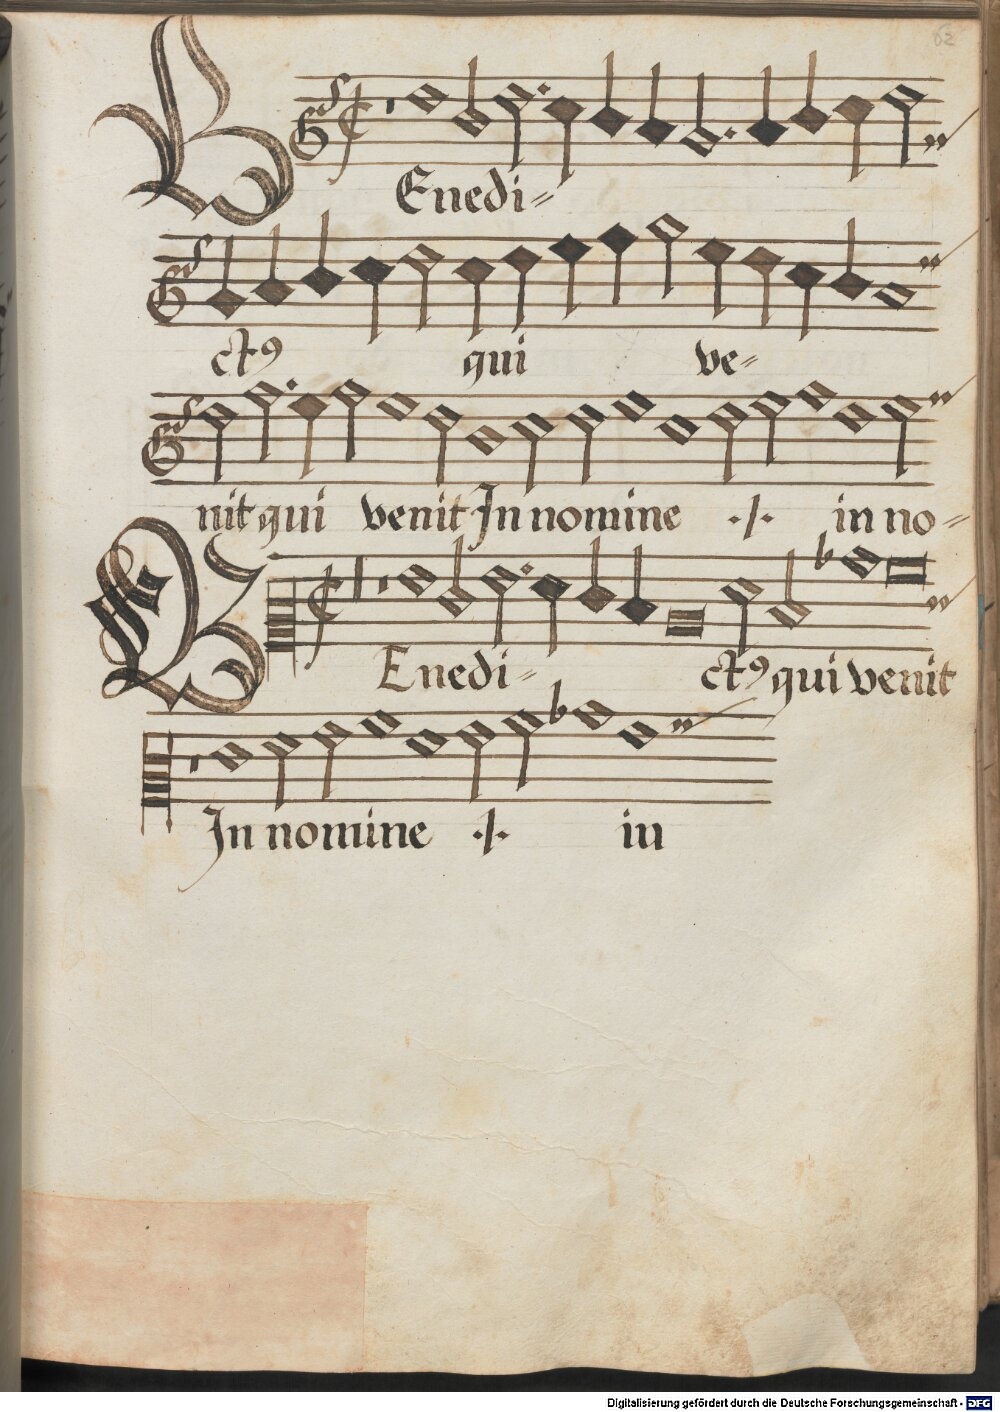 62
BEnedi=
ctꝰ qui ve=
nit qui venit In nomine ·/· in no=
BEnedi= ctꝰ qui venit
In nomine ·/· in
Digitalisierung gefördert durch die Deutsche Forschungsgemeinschaft - DFG